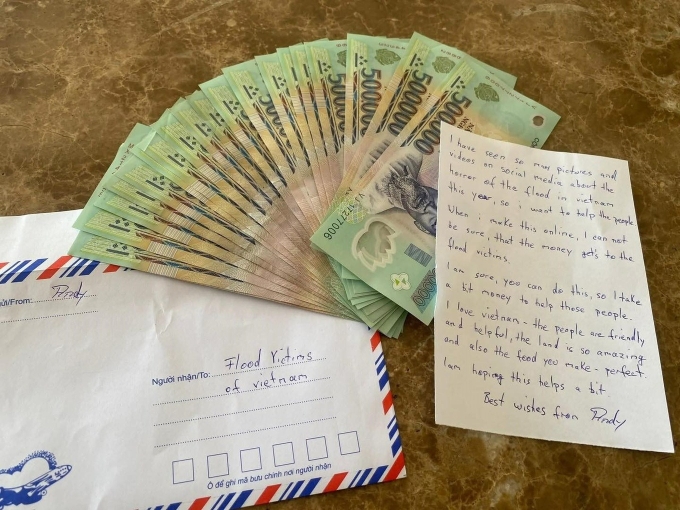 500000
500000
500000
500.000
I have seen so many pictures and
videos on social media about the
horror of the flood in vietnam
this year, so i want to help the people.
When i make this online, I can not
be sure, that the money gets to the
flood victims.
I am sure, you can do this, so I take
a bit money to help those people.
I love vietnam - the people are friendly
and helpful, the land is so amazing
and also the food you make - perfect.
I am hoping this helps a bit.
Best wishes from
From:
Người nhận/To: Flood Victims
of vietnam
Ô để ghi mã bưu chính nơi người nhận